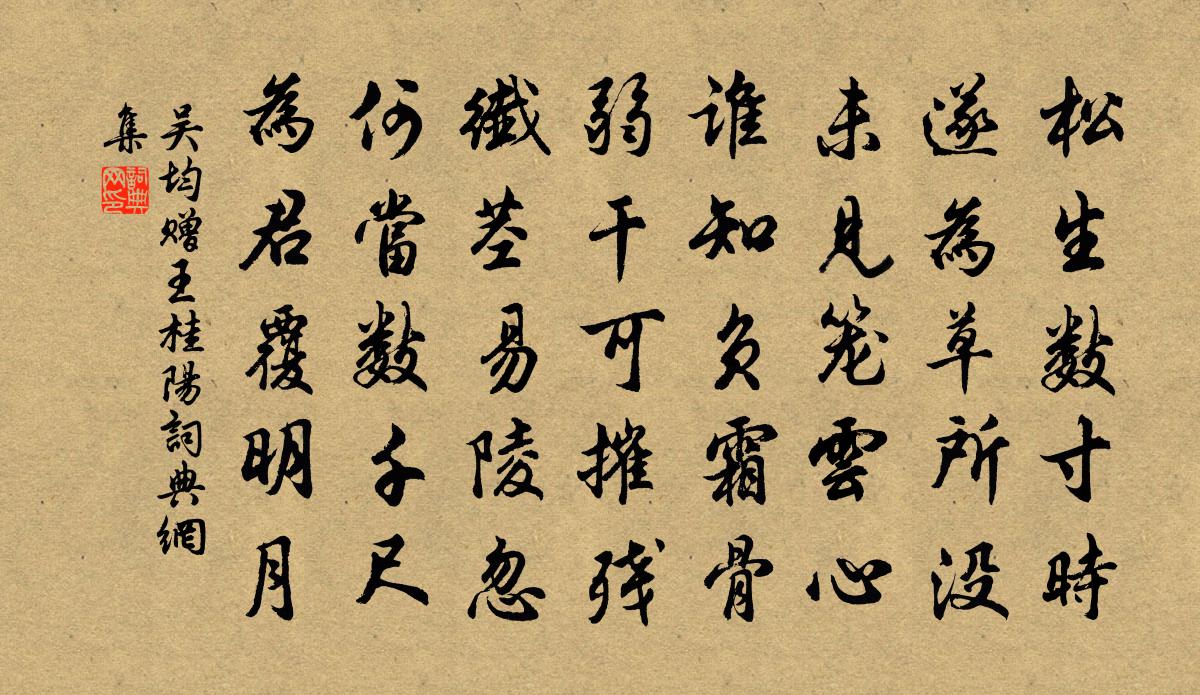 松生數寸時
遂為草所没
未見笼雲心
谁知负霜骨
弱干可摧残
纖茎易陵忽
何當數千尺
為君覆明月
吴均赠王桂陽詞典網
集
詞典
网印